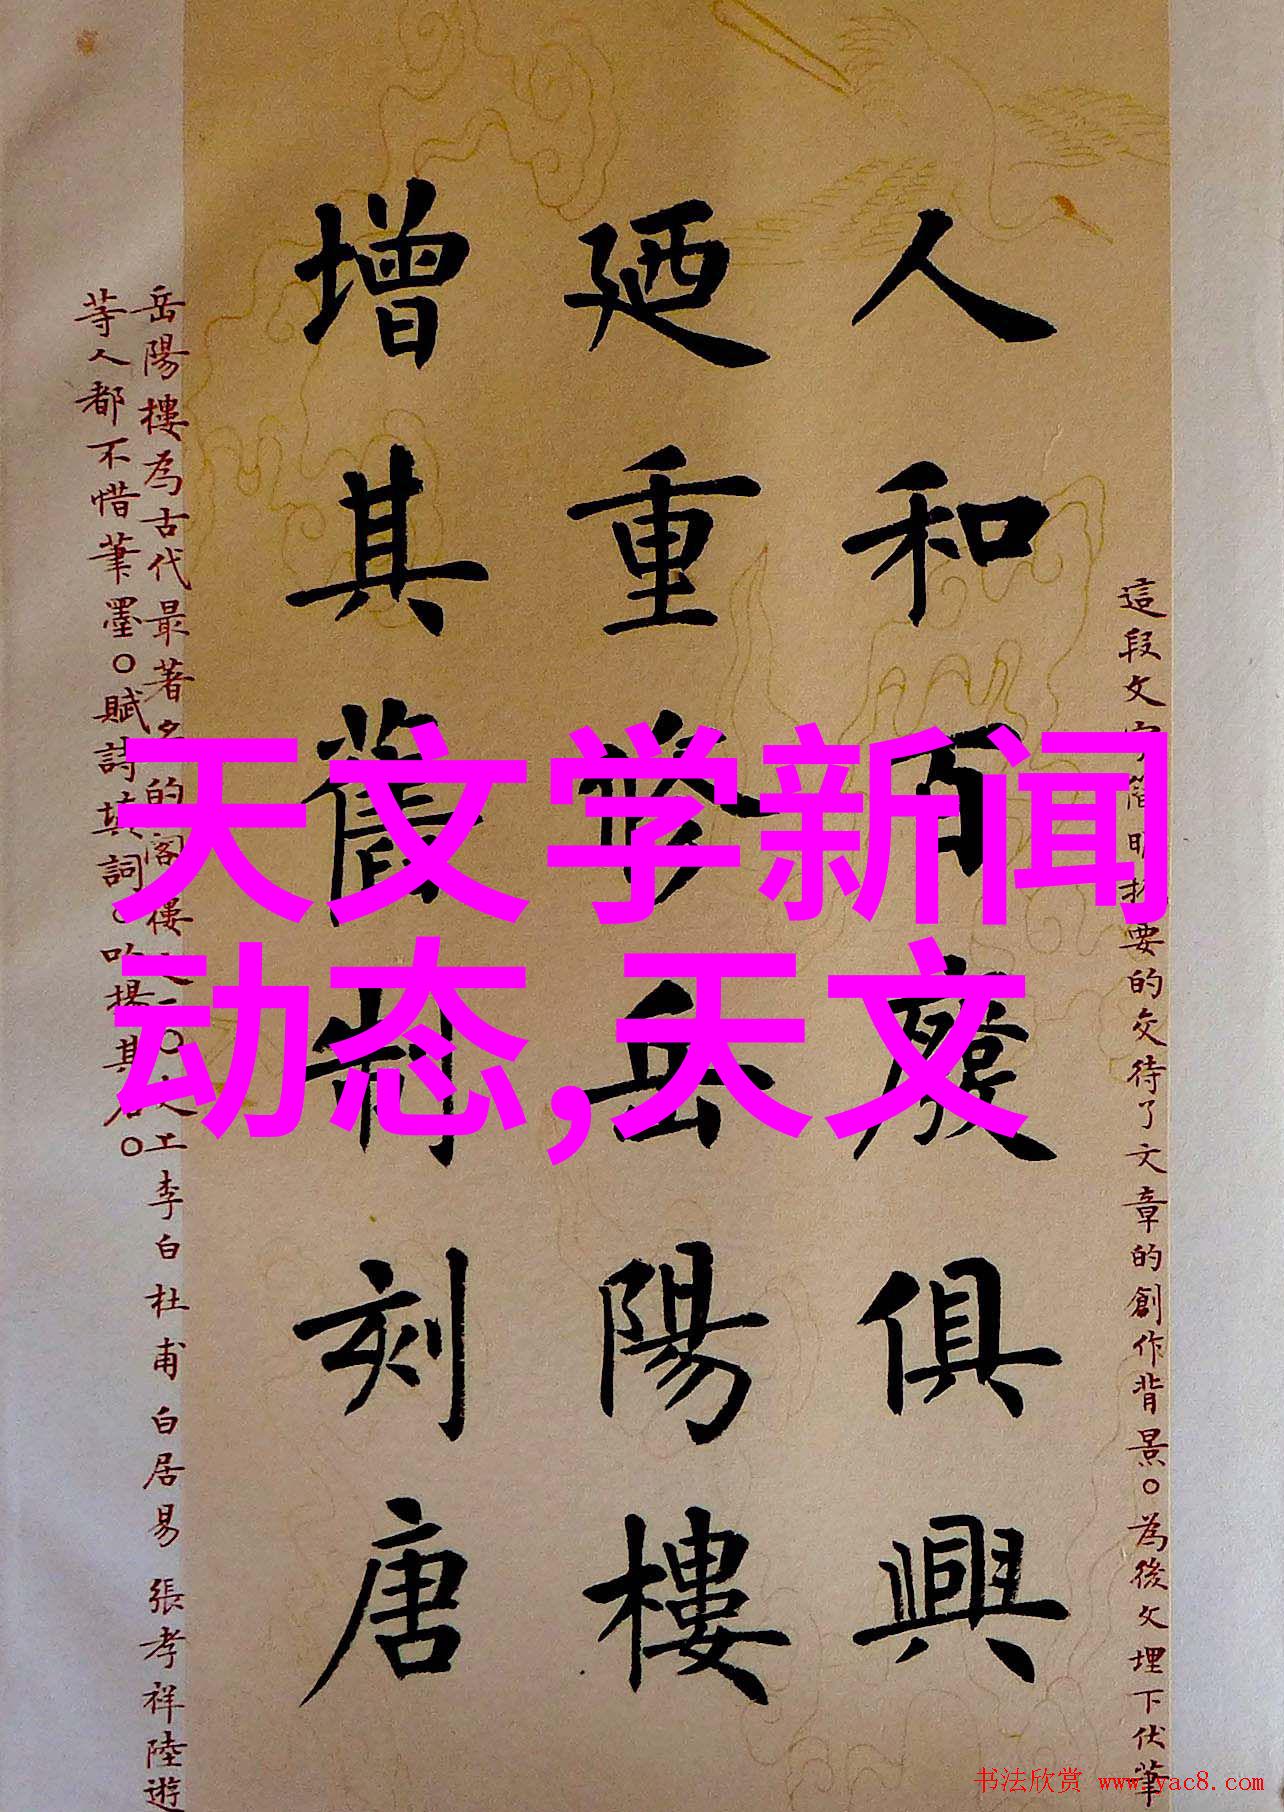 天文学新闻
动态,天文
這段文字簡明扼要的交待了文章的創作背景。為後文埋下伏筆
人和百廢俱興
廼重修岳陽樓
增其舊制刻唐
岳陽樓為古代最著名的閣樓之一。文工李白杜甫白居易張孝祥陸遊
等人都不惜筆墨。賦詩填詞。吟揚其名。
书法欣赏 www.yac8.com